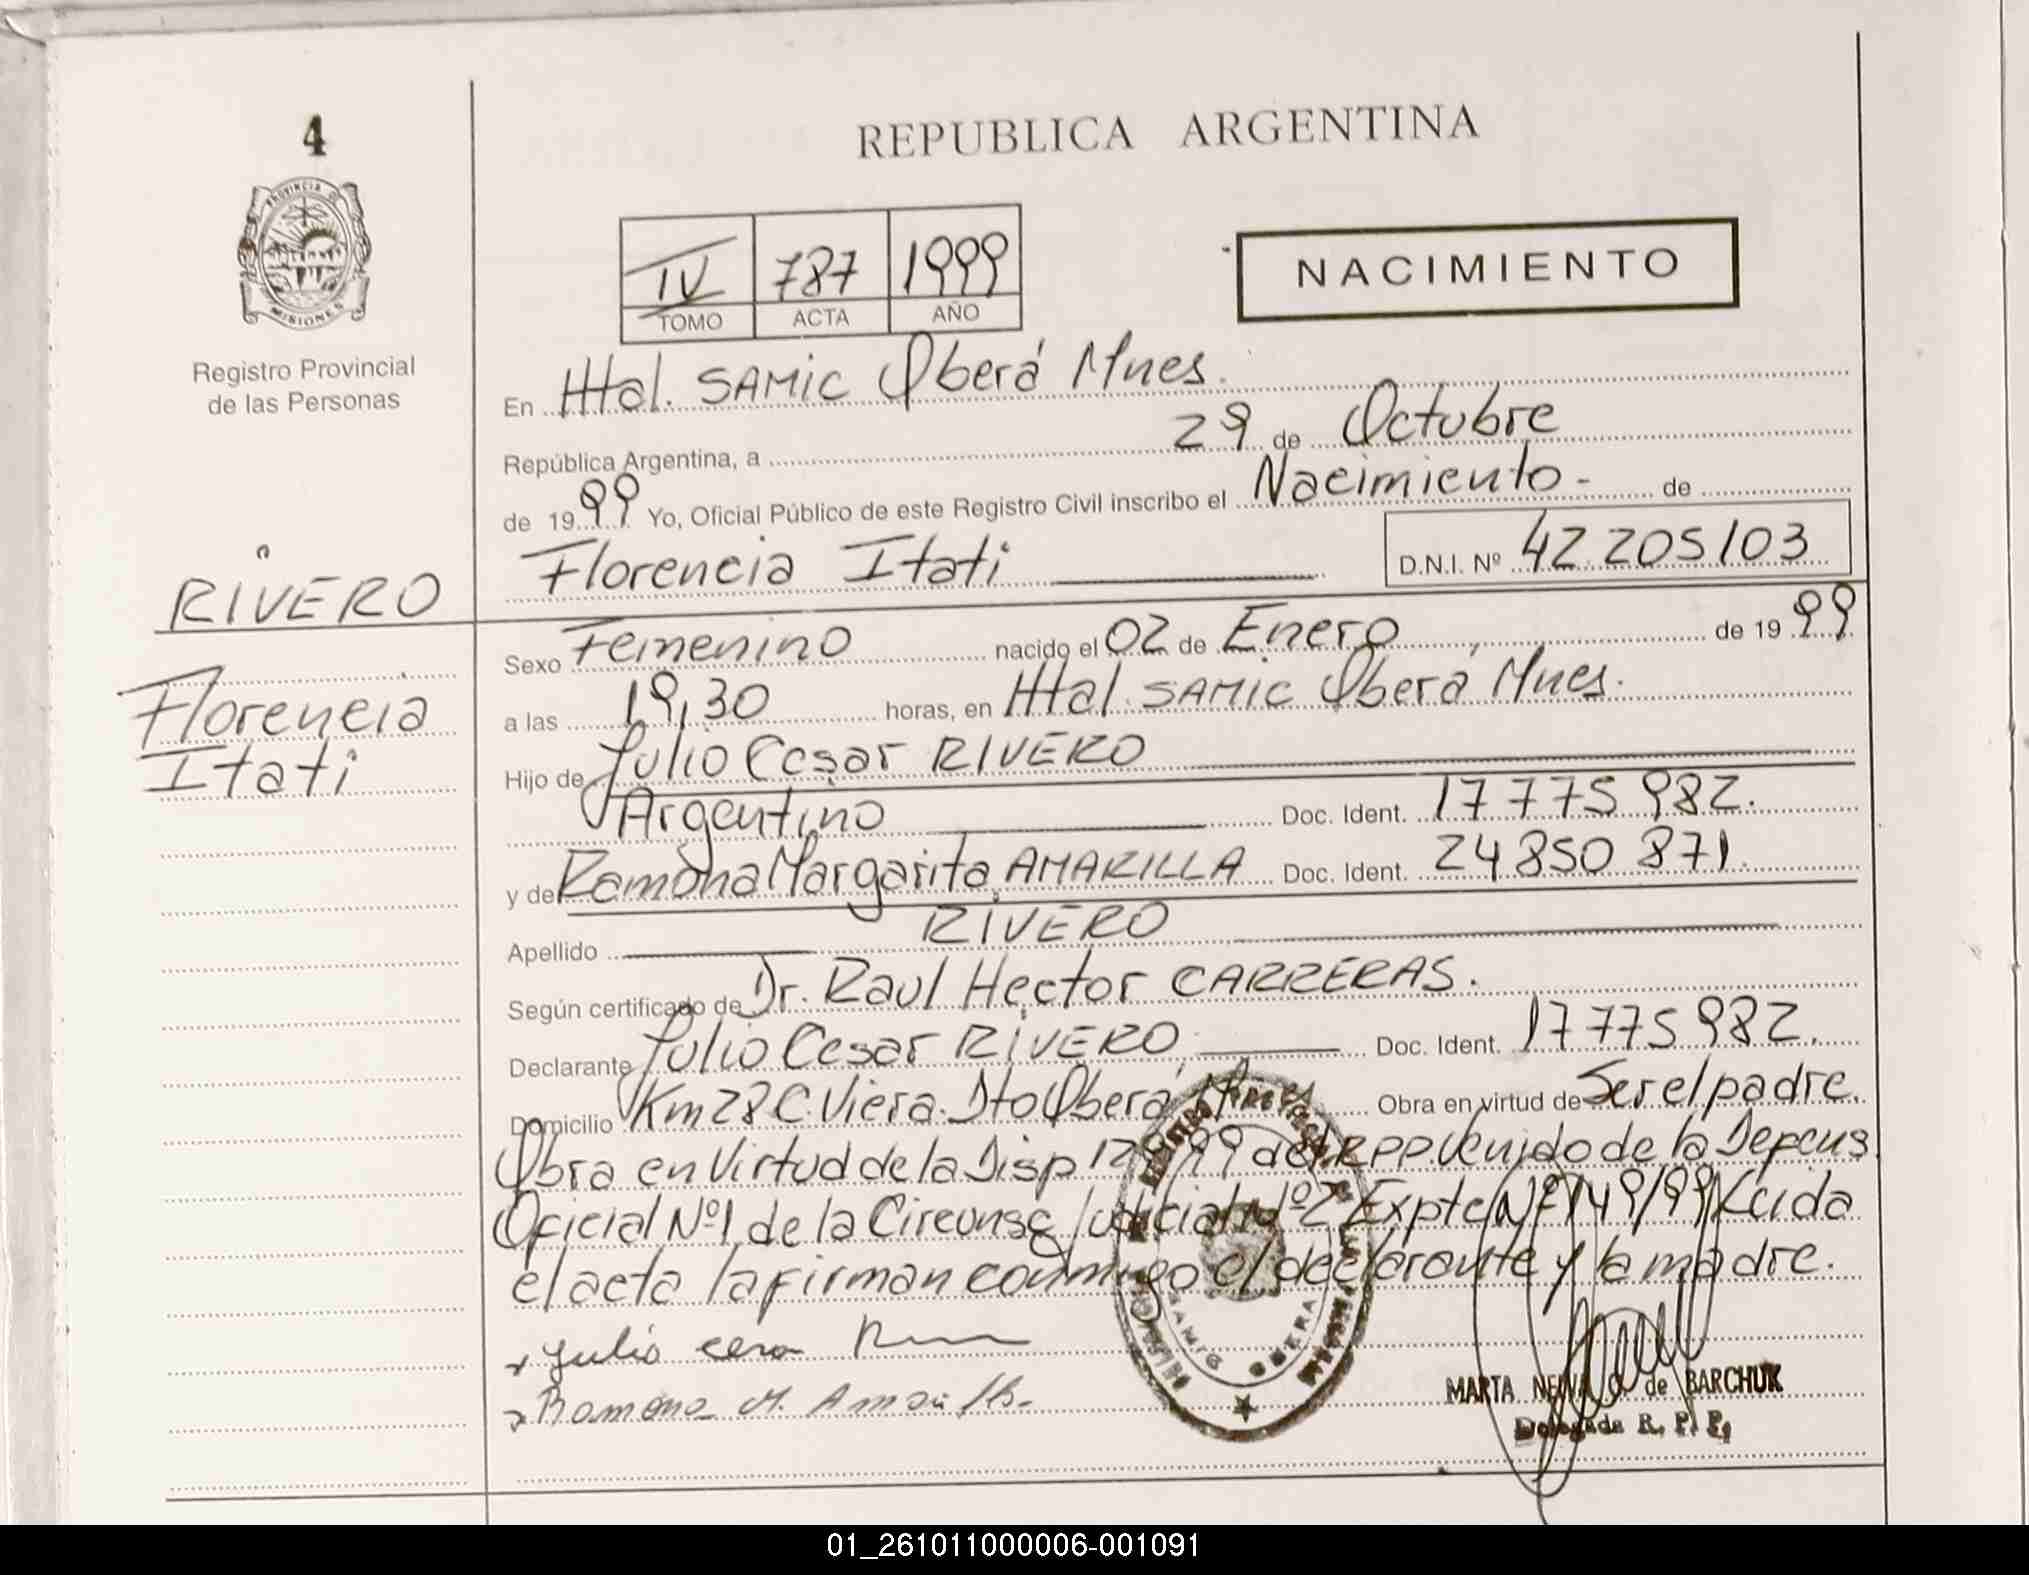 4
REPUBLICA ARGENTINA
PROVINCIA DE
MISIONES
Registro Provincial
de las Personas
IV 787 1999
TOMO ACTA AÑO
NACIMIENTO
En Htal. SAMIC Oberá Mnes.
República Argentina, a 29 de Octubre
de 1999 Yo, Oficial Público de este Registro Civil inscribo el Nacimiento - de
Florencia Itati D.N.I. Nº 42 205 103
RIVERO
Florencia
Itati
Sexo Femenino nacido el 02 de Enero de 1999
a las 19,30 horas, en Htal. SAMIC Oberá Mnes.
Hijo de Julio Cesar RIVERO
Argentino Doc. Ident. 17 775 982.
y de Ramona Margarita AMARILLA Doc. Ident. 24 850 871.
Apellido RIVERO
Según certificado de Dr. Raul Hector CARRERAS.
Declarante Julio Cesar RIVERO Doc. Ident. 17 775 982.
Domicilio Km 28 C. Viera. Dto Oberá Mnes Obra en virtud de Ser el padre.
Obra en Virtud de la Disp 99 del RPP Venido de la Depens
Oficial Nº1 de la Circunsc Judicial Nº2 Expte Nº 149/99 Leida
el acta la firman conmigo el declarante y la madre.
Julio cesar
Ramona M. Amarilla
SAMIC OBERA
MARTA de BARCHUK
Delegada R. P. P.
01_261011000006-001091